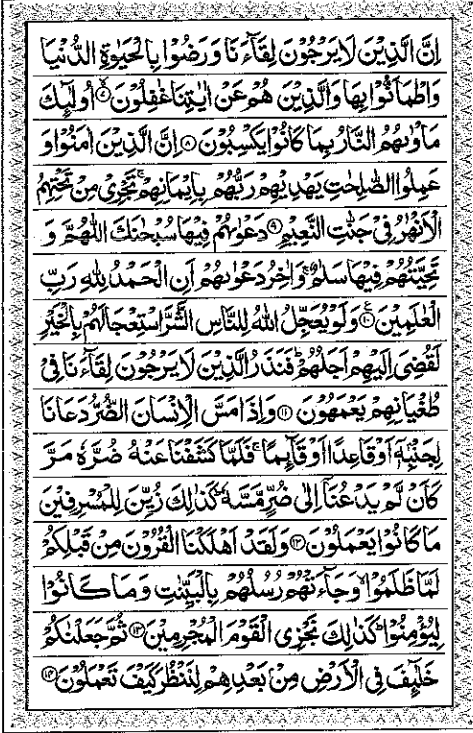 اِنَّ الَّذِيْنَ لَا يَرْجُوْنَ لِقَآءَنَا وَرَضُوْا بِالْحَيٰوةِ الدُّنْيَا
وَاطْمَاَنُّوْا بِهَا وَالَّذِيْنَ هُمْ عَنْ اٰيٰتِنَا غٰفِلُوْنَ ۙ﴿۷﴾ اُولٰٓئِكَ
مَاْوٰىهُمُ النَّارُ بِمَا كَانُوْا يَكْسِبُوْنَ ﴿۸﴾ اِنَّ الَّذِيْنَ اٰمَنُوْا وَ
عَمِلُوا الصّٰلِحٰتِ يَهْدِيْهِمْ رَبُّهُمْ بِاِيْمَانِهِمْ ۚ تَجْرِيْ مِنْ تَحْتِهِمُ
الْاَنْهٰرُ فِيْ جَنّٰتِ النَّعِيْمِ ﴿۹﴾ دَعْوٰىهُمْ فِيْهَا سُبْحٰنَكَ اللّٰهُمَّ وَ
تَحِيَّتُهُمْ فِيْهَا سَلٰمٌ ۚ وَاٰخِرُ دَعْوٰىهُمْ اَنِ الْحَمْدُ لِلّٰهِ رَبِّ
الْعٰلَمِيْنَ ﴿۱۰﴾ وَلَوْ يُعَجِّلُ اللّٰهُ لِلنَّاسِ الشَّرَّ اسْتِعْجَالَهُمْ بِالْخَيْرِ
لَقُضِيَ اِلَيْهِمْ اَجَلُهُمْ ؕ فَنَذَرُ الَّذِيْنَ لَا يَرْجُوْنَ لِقَآءَنَا فِيْ
طُغْيَانِهِمْ يَعْمَهُوْنَ ﴿۱۱﴾ وَاِذَا مَسَّ الْاِنْسَانَ الضُّرُّ دَعَانَا
لِجَنْۢبِهٖۤ اَوْ قَاعِدًا اَوْ قَآئِمًا ۚ فَلَمَّا كَشَفْنَا عَنْهُ ضُرَّهٗ مَرَّ
كَاَنْ لَّمْ يَدْعُنَاۤ اِلٰى ضُرٍّ مَّسَّهٗ ؕ كَذٰلِكَ زُيِّنَ لِلْمُسْرِفِيْنَ
مَا كَانُوْا يَعْمَلُوْنَ ﴿۱۲﴾ وَلَقَدْ اَهْلَكْنَا الْقُرُوْنَ مِنْ قَبْلِكُمْ
لَمَّا ظَلَمُوْا ۙ وَجَآءَتْهُمْ رُسُلُهُمْ بِالْبَيِّنٰتِ وَمَا كَانُوْا
لِيُؤْمِنُوْا ؕ كَذٰلِكَ نَجْزِي الْقَوْمَ الْمُجْرِمِيْنَ ﴿۱۳﴾ ثُمَّ جَعَلْنٰكُمْ
خَلٰٓئِفَ فِي الْاَرْضِ مِنْۢ بَعْدِهِمْ لِنَنْظُرَ كَيْفَ تَعْمَلُوْنَ ﴿۱۴﴾